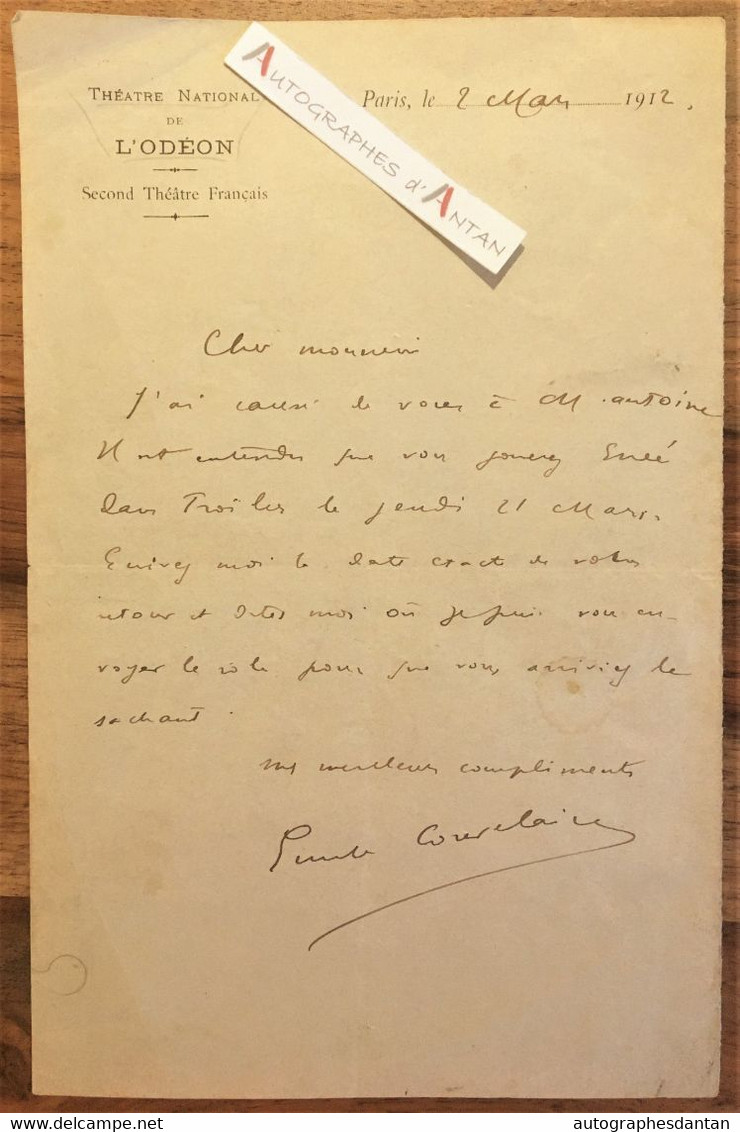 THÉATRE NATIONAL
DE
L'ODÉON
Second Théâtre Français
AUTOGRAPHES d'ANTAN
Paris, le 2 Mars 1912.
Cher monsieur
J'ai causé de vous à M. Antoine
Il est entendu que vous jouerez Enée
dans Troïlus le jeudi 21 Mars.
Ecrivez moi la date exact de votre
retour et dites moi où je puis vous en-
voyer le role pour que vous arriviez le
sachant.
mes meilleurs compliments
delcampe.net
autographesdantan